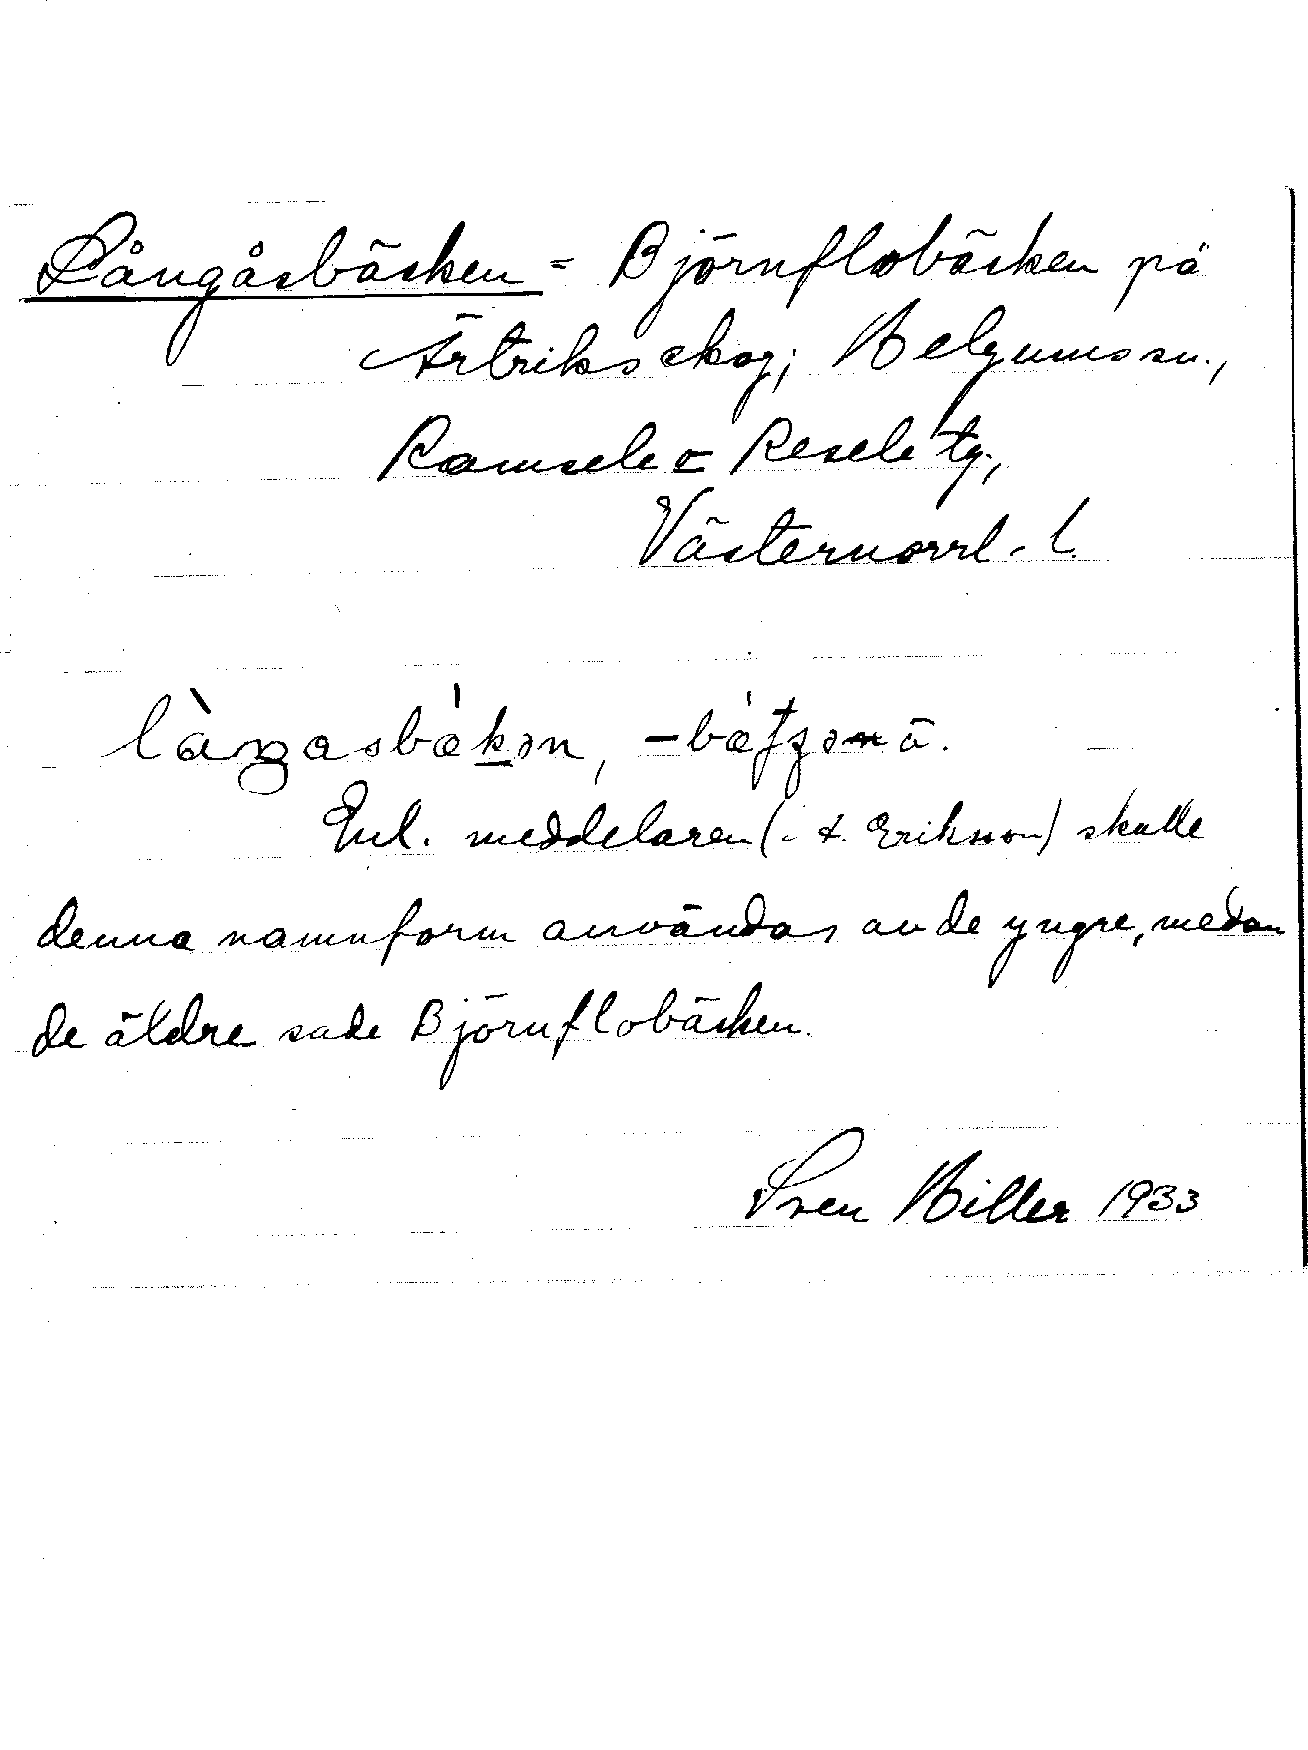 Långåsbäcken = Björnflobäcken på
Ärtriks skog; Helgums sn.,
Ramsele o Resele tg.,
Västernorrl. l.
Enl. meddelaren (. Erikson) skulle
denna namnform användas av de yngre, medan
de äldre sade Björnflobäcken.
Sven Hiller 1933